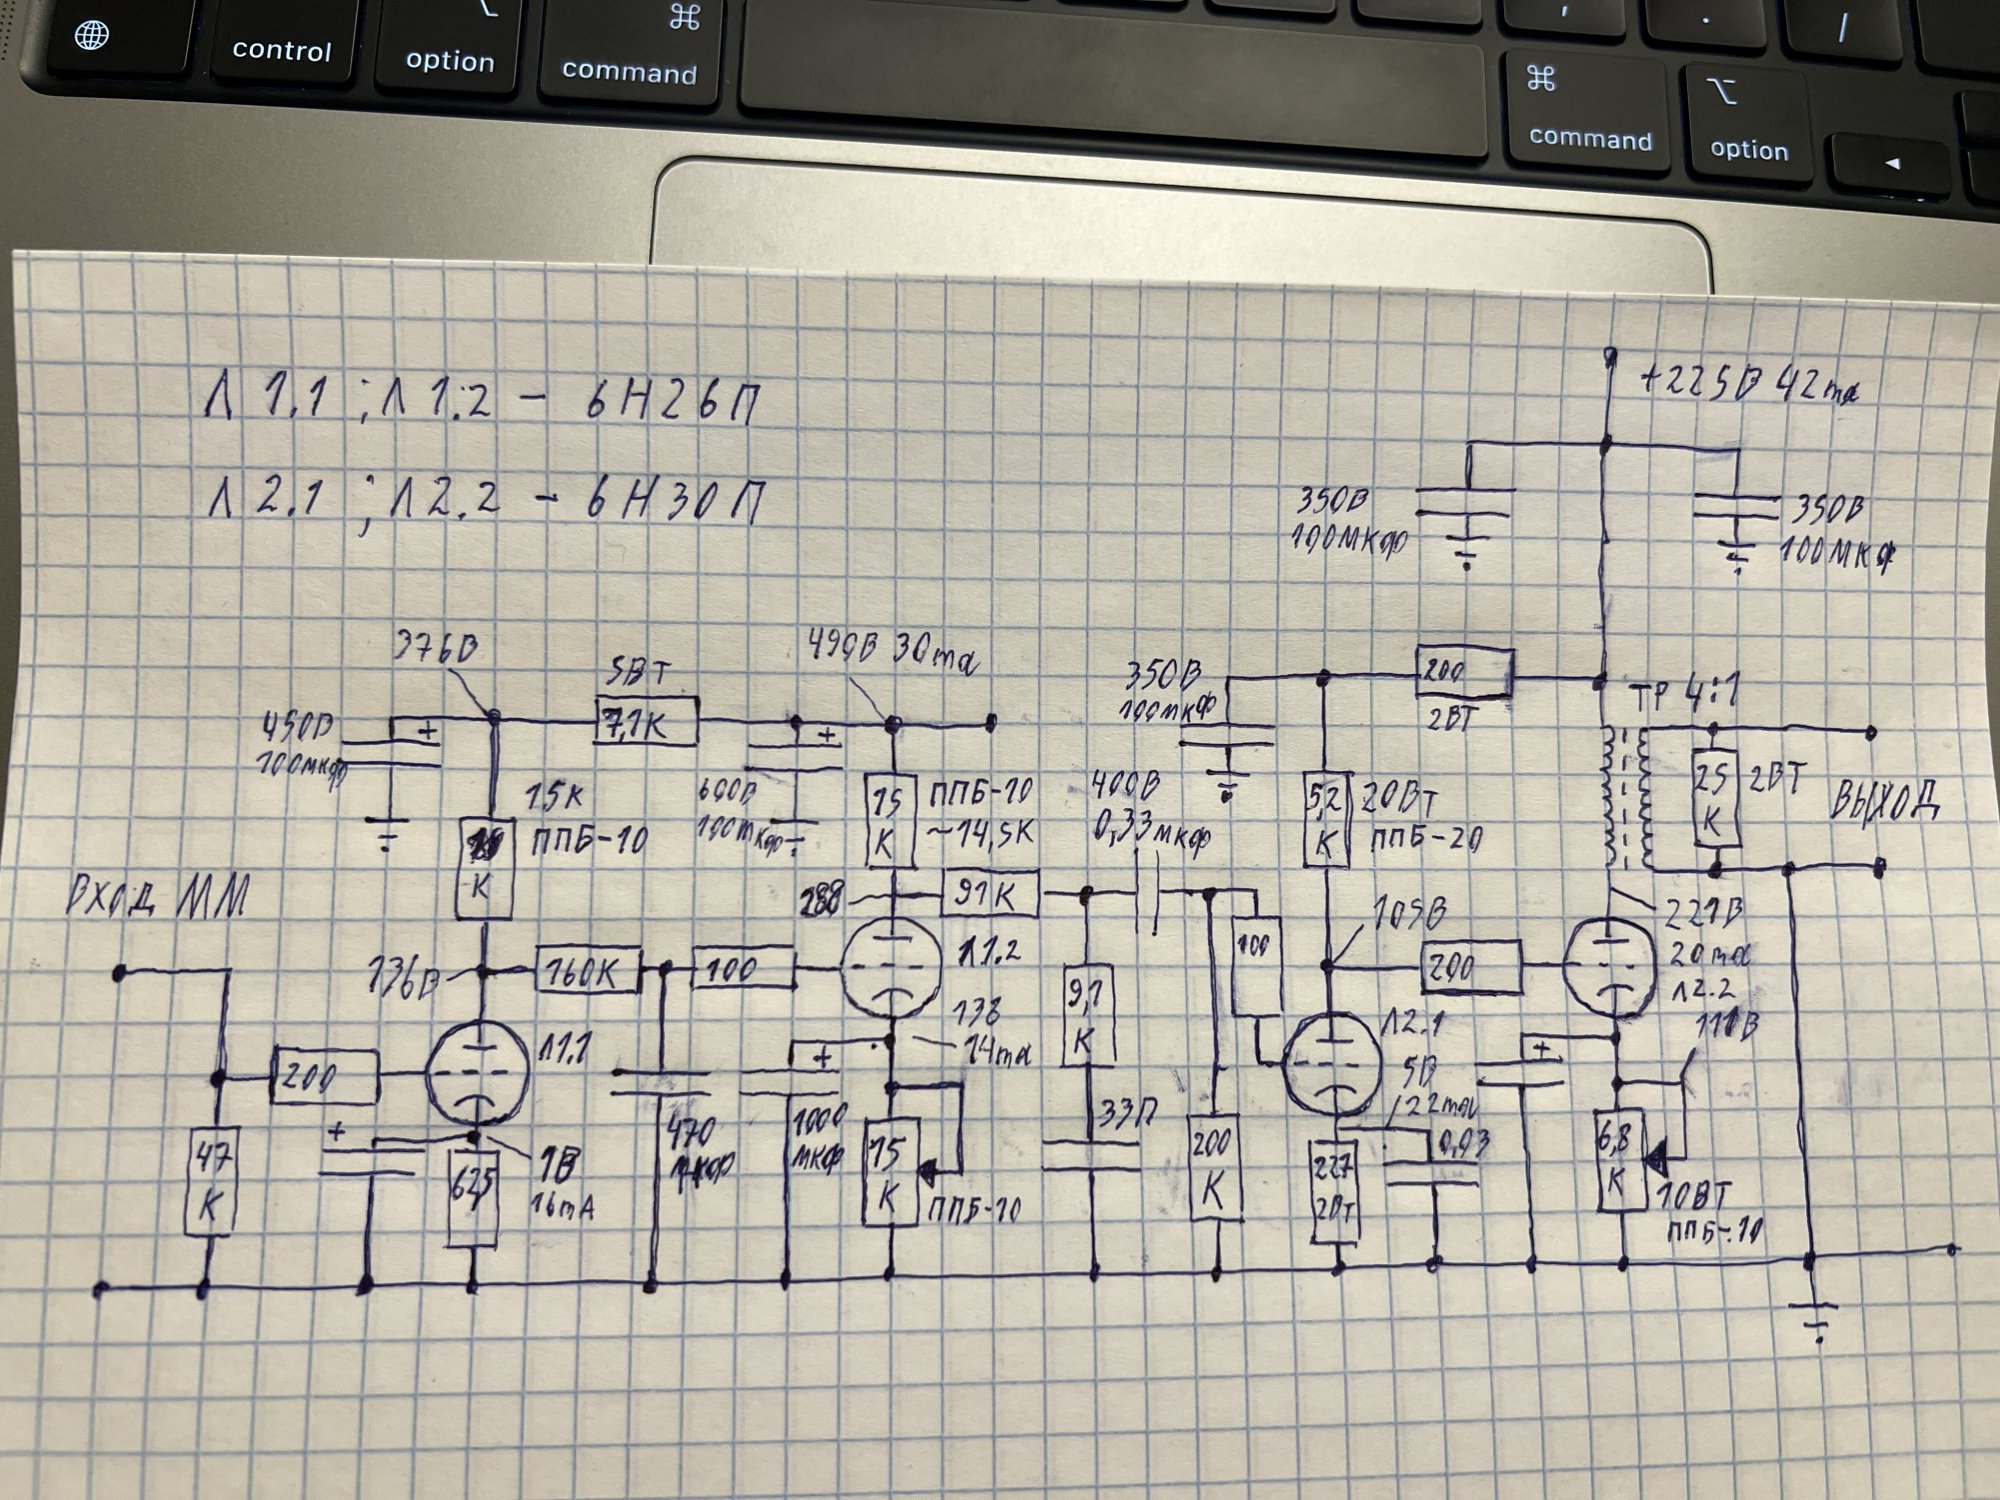 control
option
command
command
option
Л 1.1 ; Л 1.2 - 6Н26П
Л 2.1 ; Л 2.2 - 6Н30П
+225В 42ma
350В
100мкф
350В
100мкф
376В
5ВТ
7,1К
490В 30ma
450В
100мкф
15К
ППБ-10
К
600В
100mкф
15
К
ППБ-10
~14,5К
350В
100мкф
400В
0,33мкф
200
2ВТ
5,2
К
20ВТ
ППБ-20
ТР 4:1
25
К
2ВТ
ВЫХОД
ВХОД ММ
136В
160К
100
288
91К
Л1.2
138
14ma
100
105В
200
221В
20ma
Л2.2
111В
47
К
200
+
Л1.1
625
1В
16mA
470
мкф
+
1000
мкф
15
К
ППБ-10
9,1
К
33П
200
К
Л2.1
5В
22ma
227
2Вт
0,03
+
6,8
К
10ВТ
ППБ-10